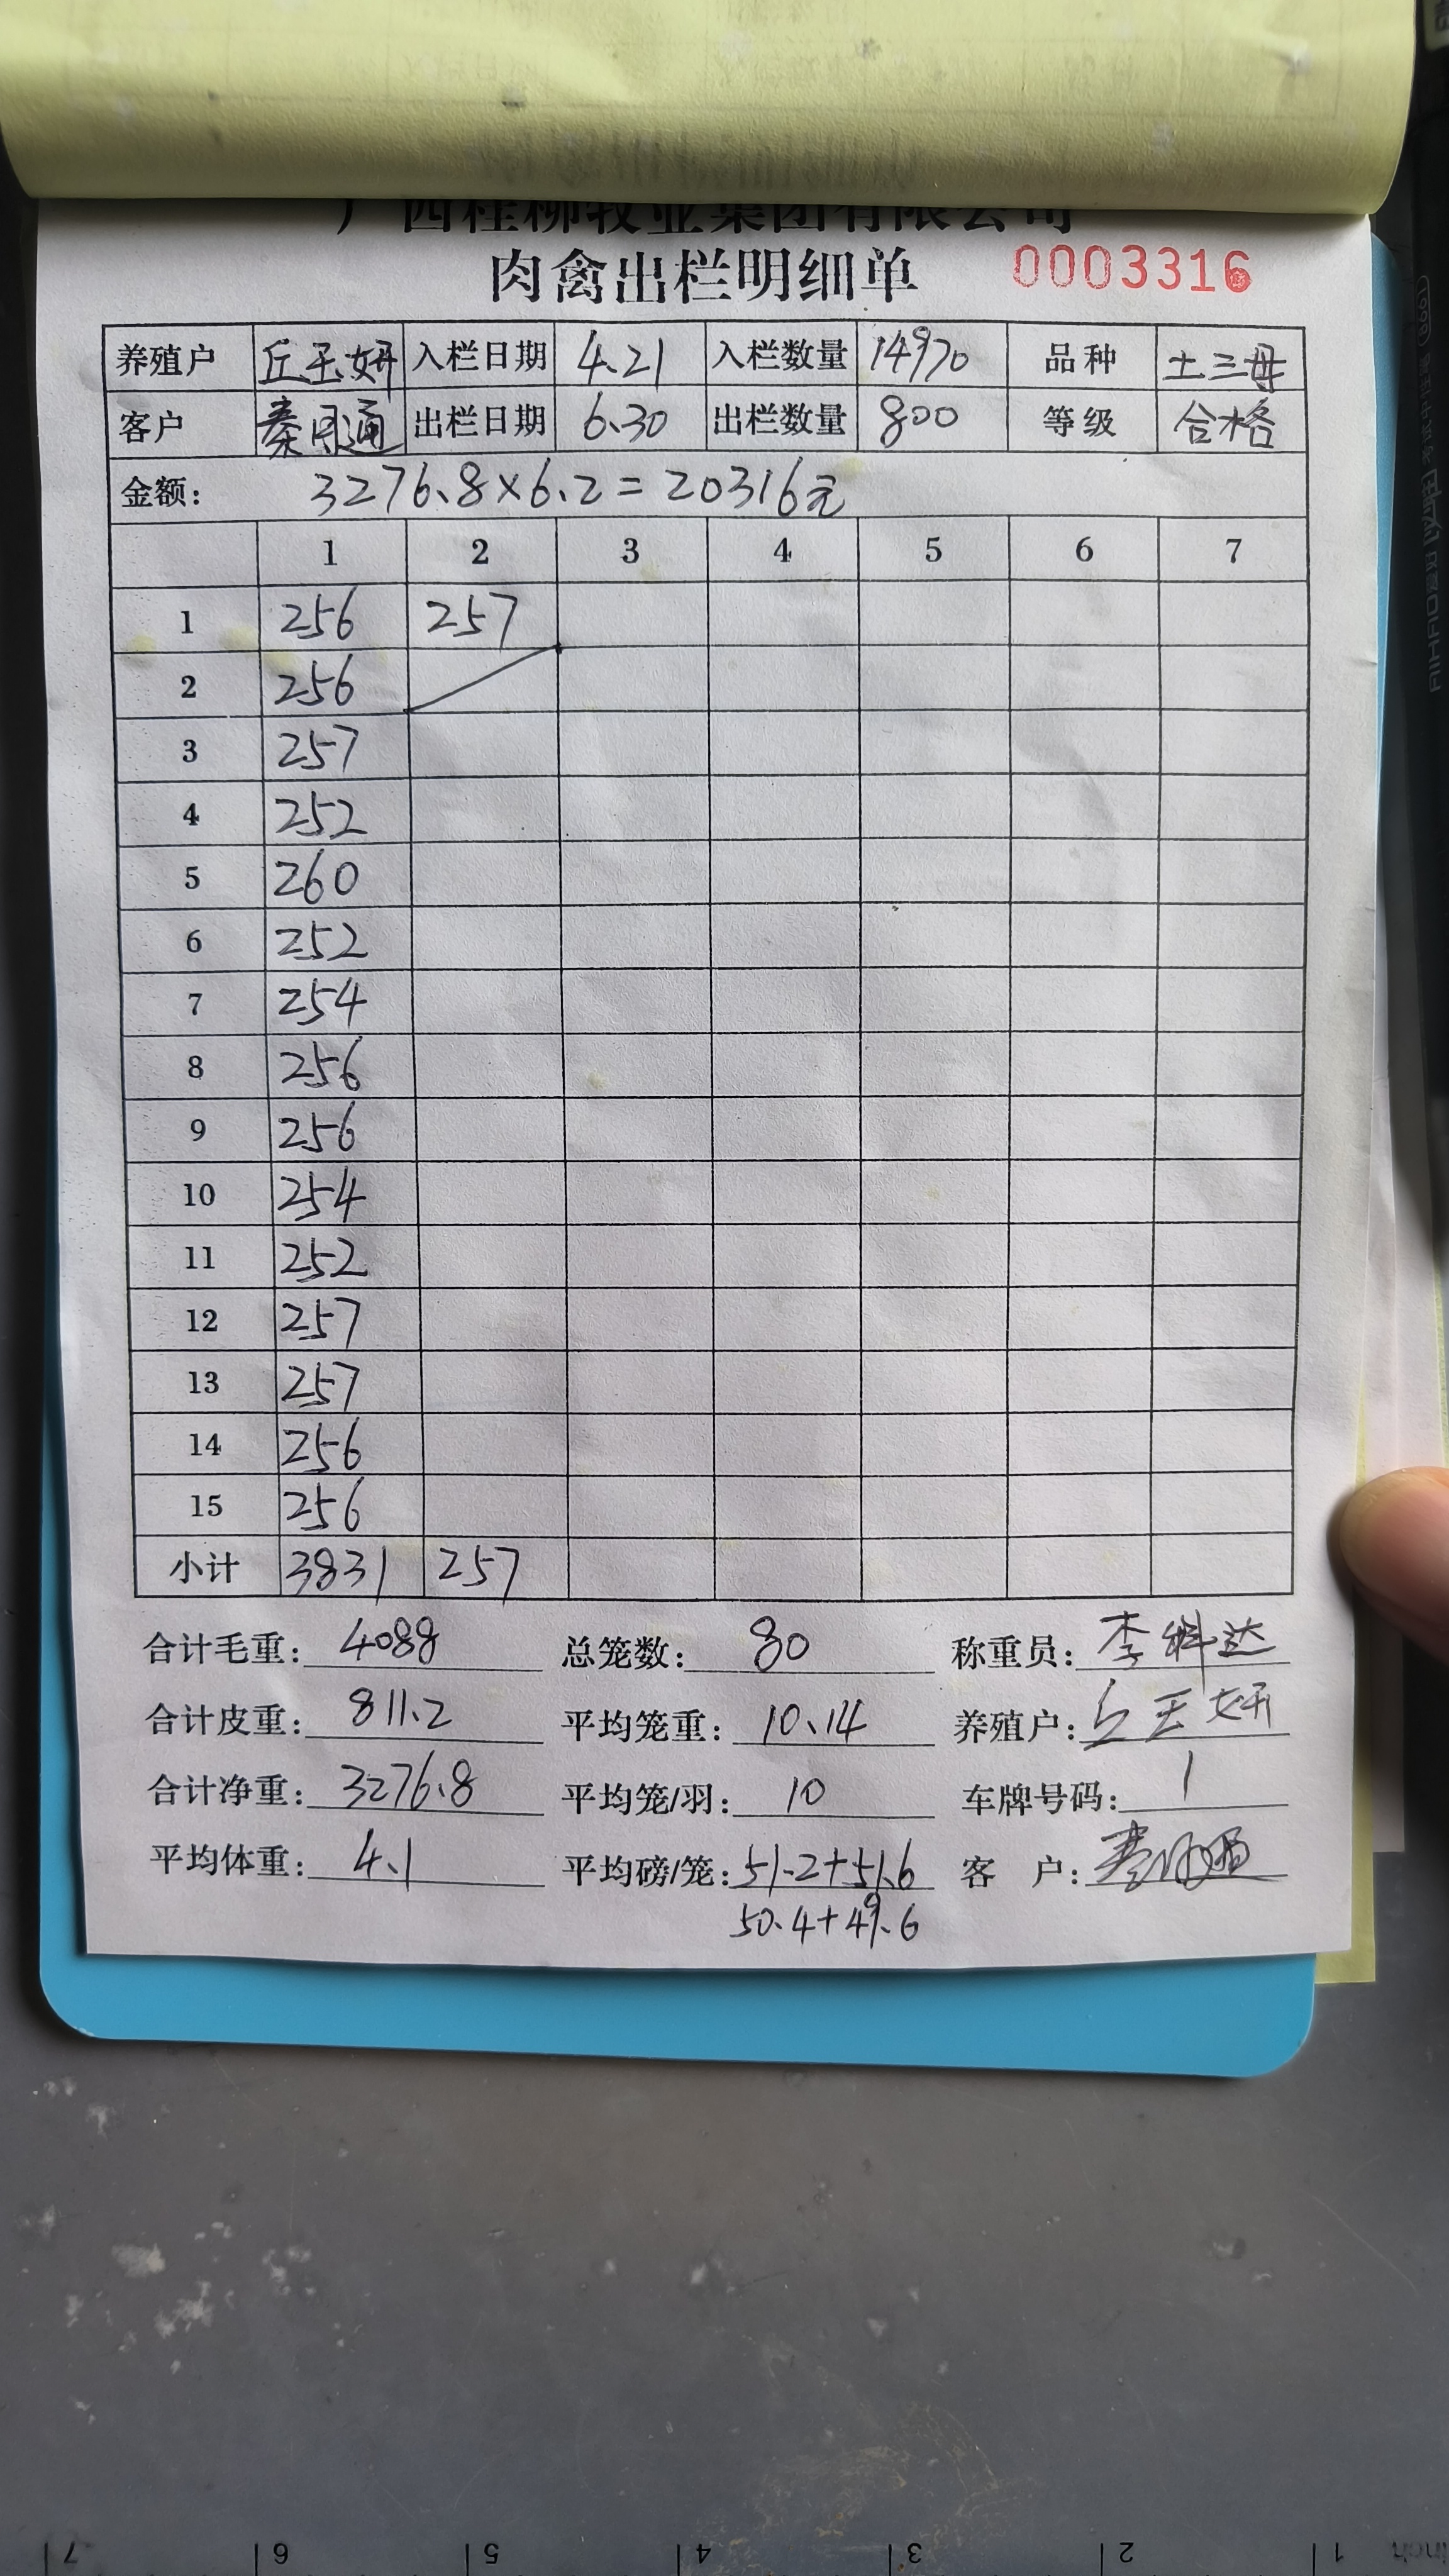 广西桂柳牧业集团有限公司
肉禽出栏明细单 0003316
养殖户 丘玉妍 入栏日期 4.21 入栏数量 14970 品种 土三母
客户 秦月通 出栏日期 6.30 出栏数量 800 等级 合格
金额: 3276.8×6.2=20316元
1 2 3 4 5 6 7
1 256 257
2 256
3 257
4 252
5 260
6 252
7 254
8 256
9 256
10 254
11 252
12 257
13 257
14 256
15 256
小计 3831 257
合计毛重: 4088 总笼数: 80 称重员: 李科达
合计皮重: 811.2 平均笼重: 10.14 养殖户: 丘玉妍
合计净重: 3276.8 平均笼/羽: 10 车牌号码: 1
平均体重: 4.1 平均磅/笼: 51.2+51.6 客 户: 秦月通
50.4+49.6
7 6 5 4 3 2 1 inch